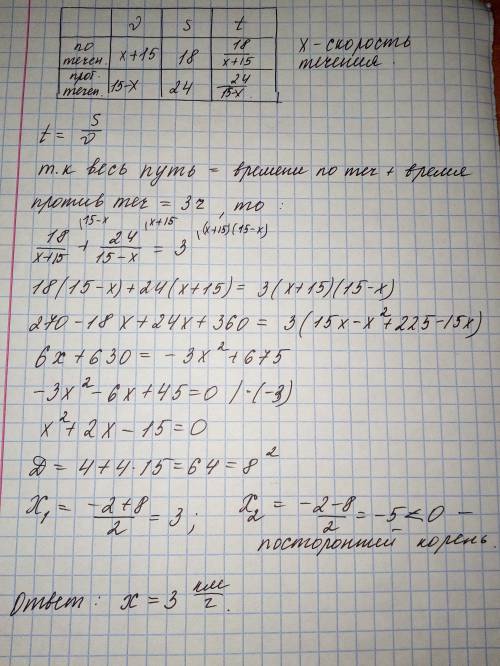 v s t
по течен. x+15 18 18/(x+15)
прот. течен. 15-x 24 24/(15-x)
x - скорость
течения.
t = s/v
т.к весь путь = времени по теч + время
против теч = 3ч, то:
18/(x+15) \15-x + 24/(15-x) \x+15 = 3 \(x+15)(15-x)
18(15-x)+24(x+15) = 3(x+15)(15-x)
270-18x+24x+360 = 3(15x-x²+225-15x)
6x+630 = -3x²+675
-3x²-6x+45=0 /·(-3)
x²+2x-15=0
D = 4+4·15=64=8²
X₁ = (-2+8)/2 = 3; X₂ = (-2-8)/2 = -5 < 0 -
посторонней корень.
Ответ: x = 3 км/ч.